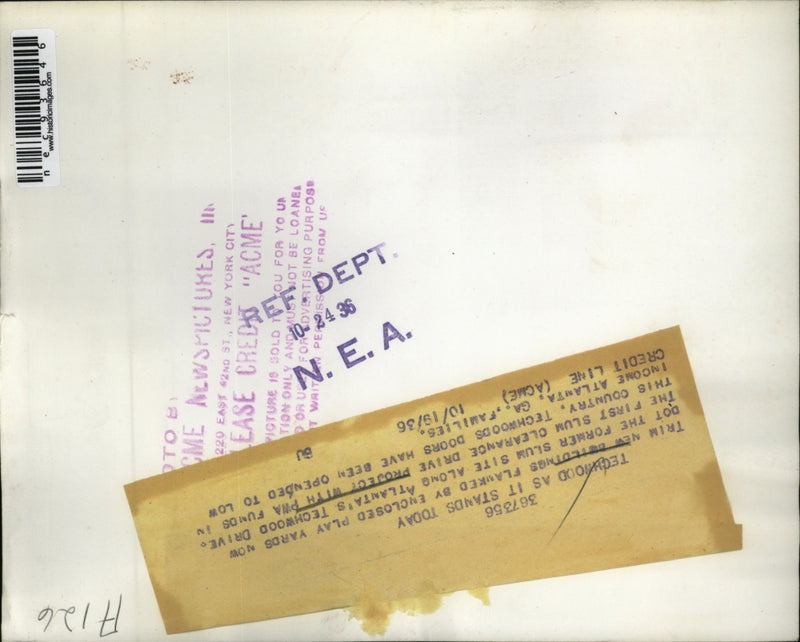 nec93646
www.historicimages.com
OTO B
CME NEWSPICTURES, IN
220 EAST 42ND ST., NEW YORK CITY
LEASE CREDIT "ACME"
PICTURE IS SOLD TO YOU FOR YOUR
TION ONLY AND MUST NOT BE LOANED
D OR USED FOR ADVERTISING PURPOSE
T WRITTEN PERMISSION FROM US
REF. DEPT.
10-24 36
N. E. A.
367356
TECHWOOD AS IT STANDS TODAY
TRIM NEW BUILDINGS FLANKED BY ENCLOSED PLAY YARDS NOW
DOT THE FORMER SLUM SITE ALONG ATLANTA'S TECHWOOD DRIVE.
THE FIRST SLUM CLEARANCE DRIVE PROJECT WITH PWA FUNDS IN
THIS COUNTRY, TECHWOODS DOORS HAVE BEEN OPENDED TO LOW
INCOME ATLANTA, GA., FAMILIES.
CREDIT LINE (ACME) 10/19/36 BU
A126